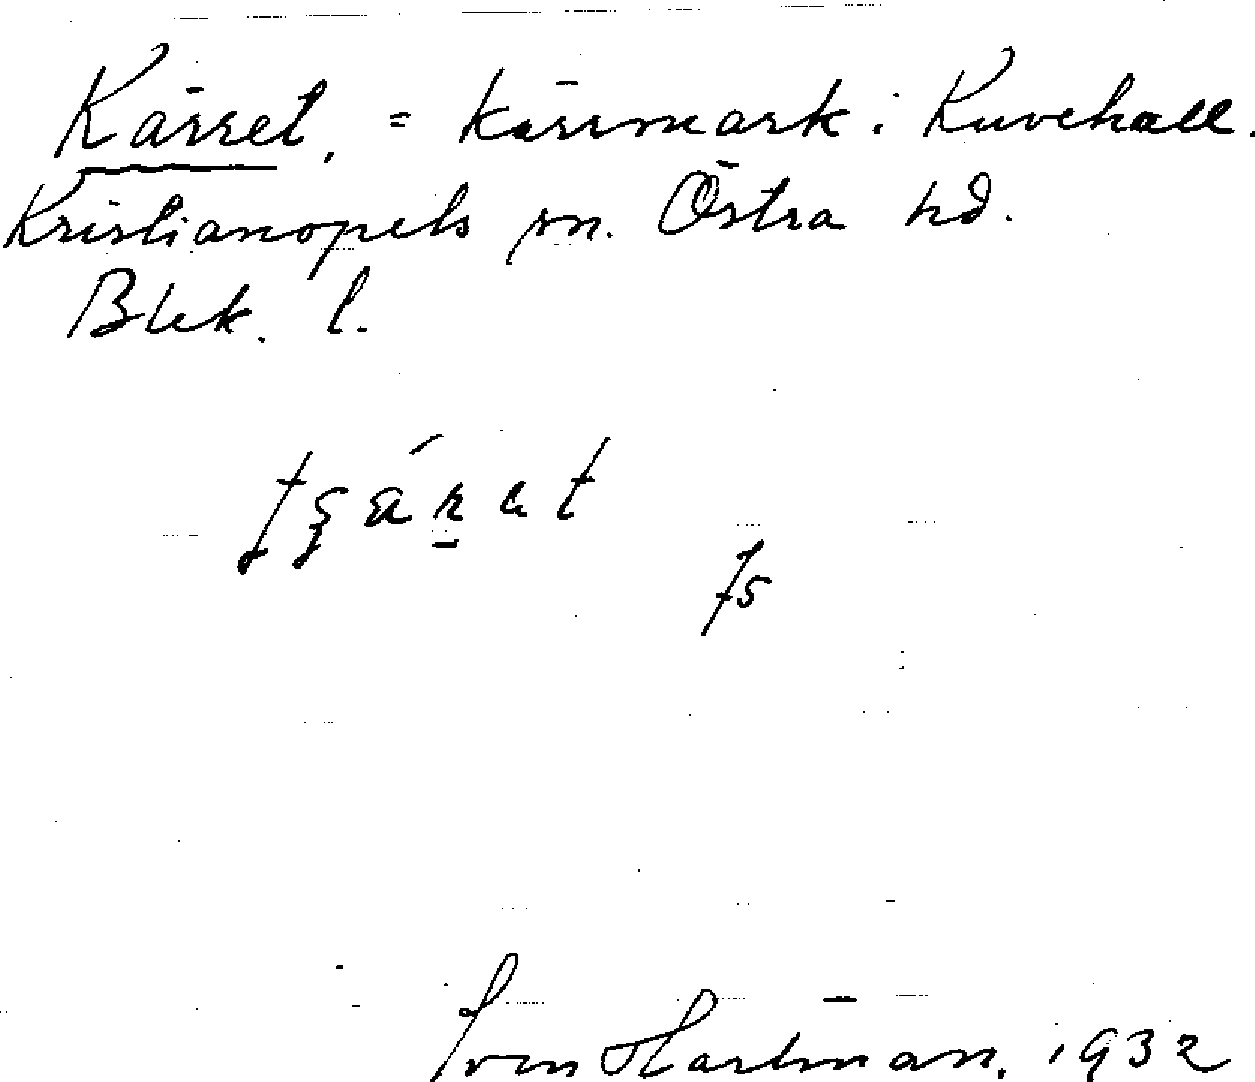 Kärret, = kärrmark i Kuvehall.
Kristianopels sn. Östra hd.
Blek. l.
Sven Hartman, 1932